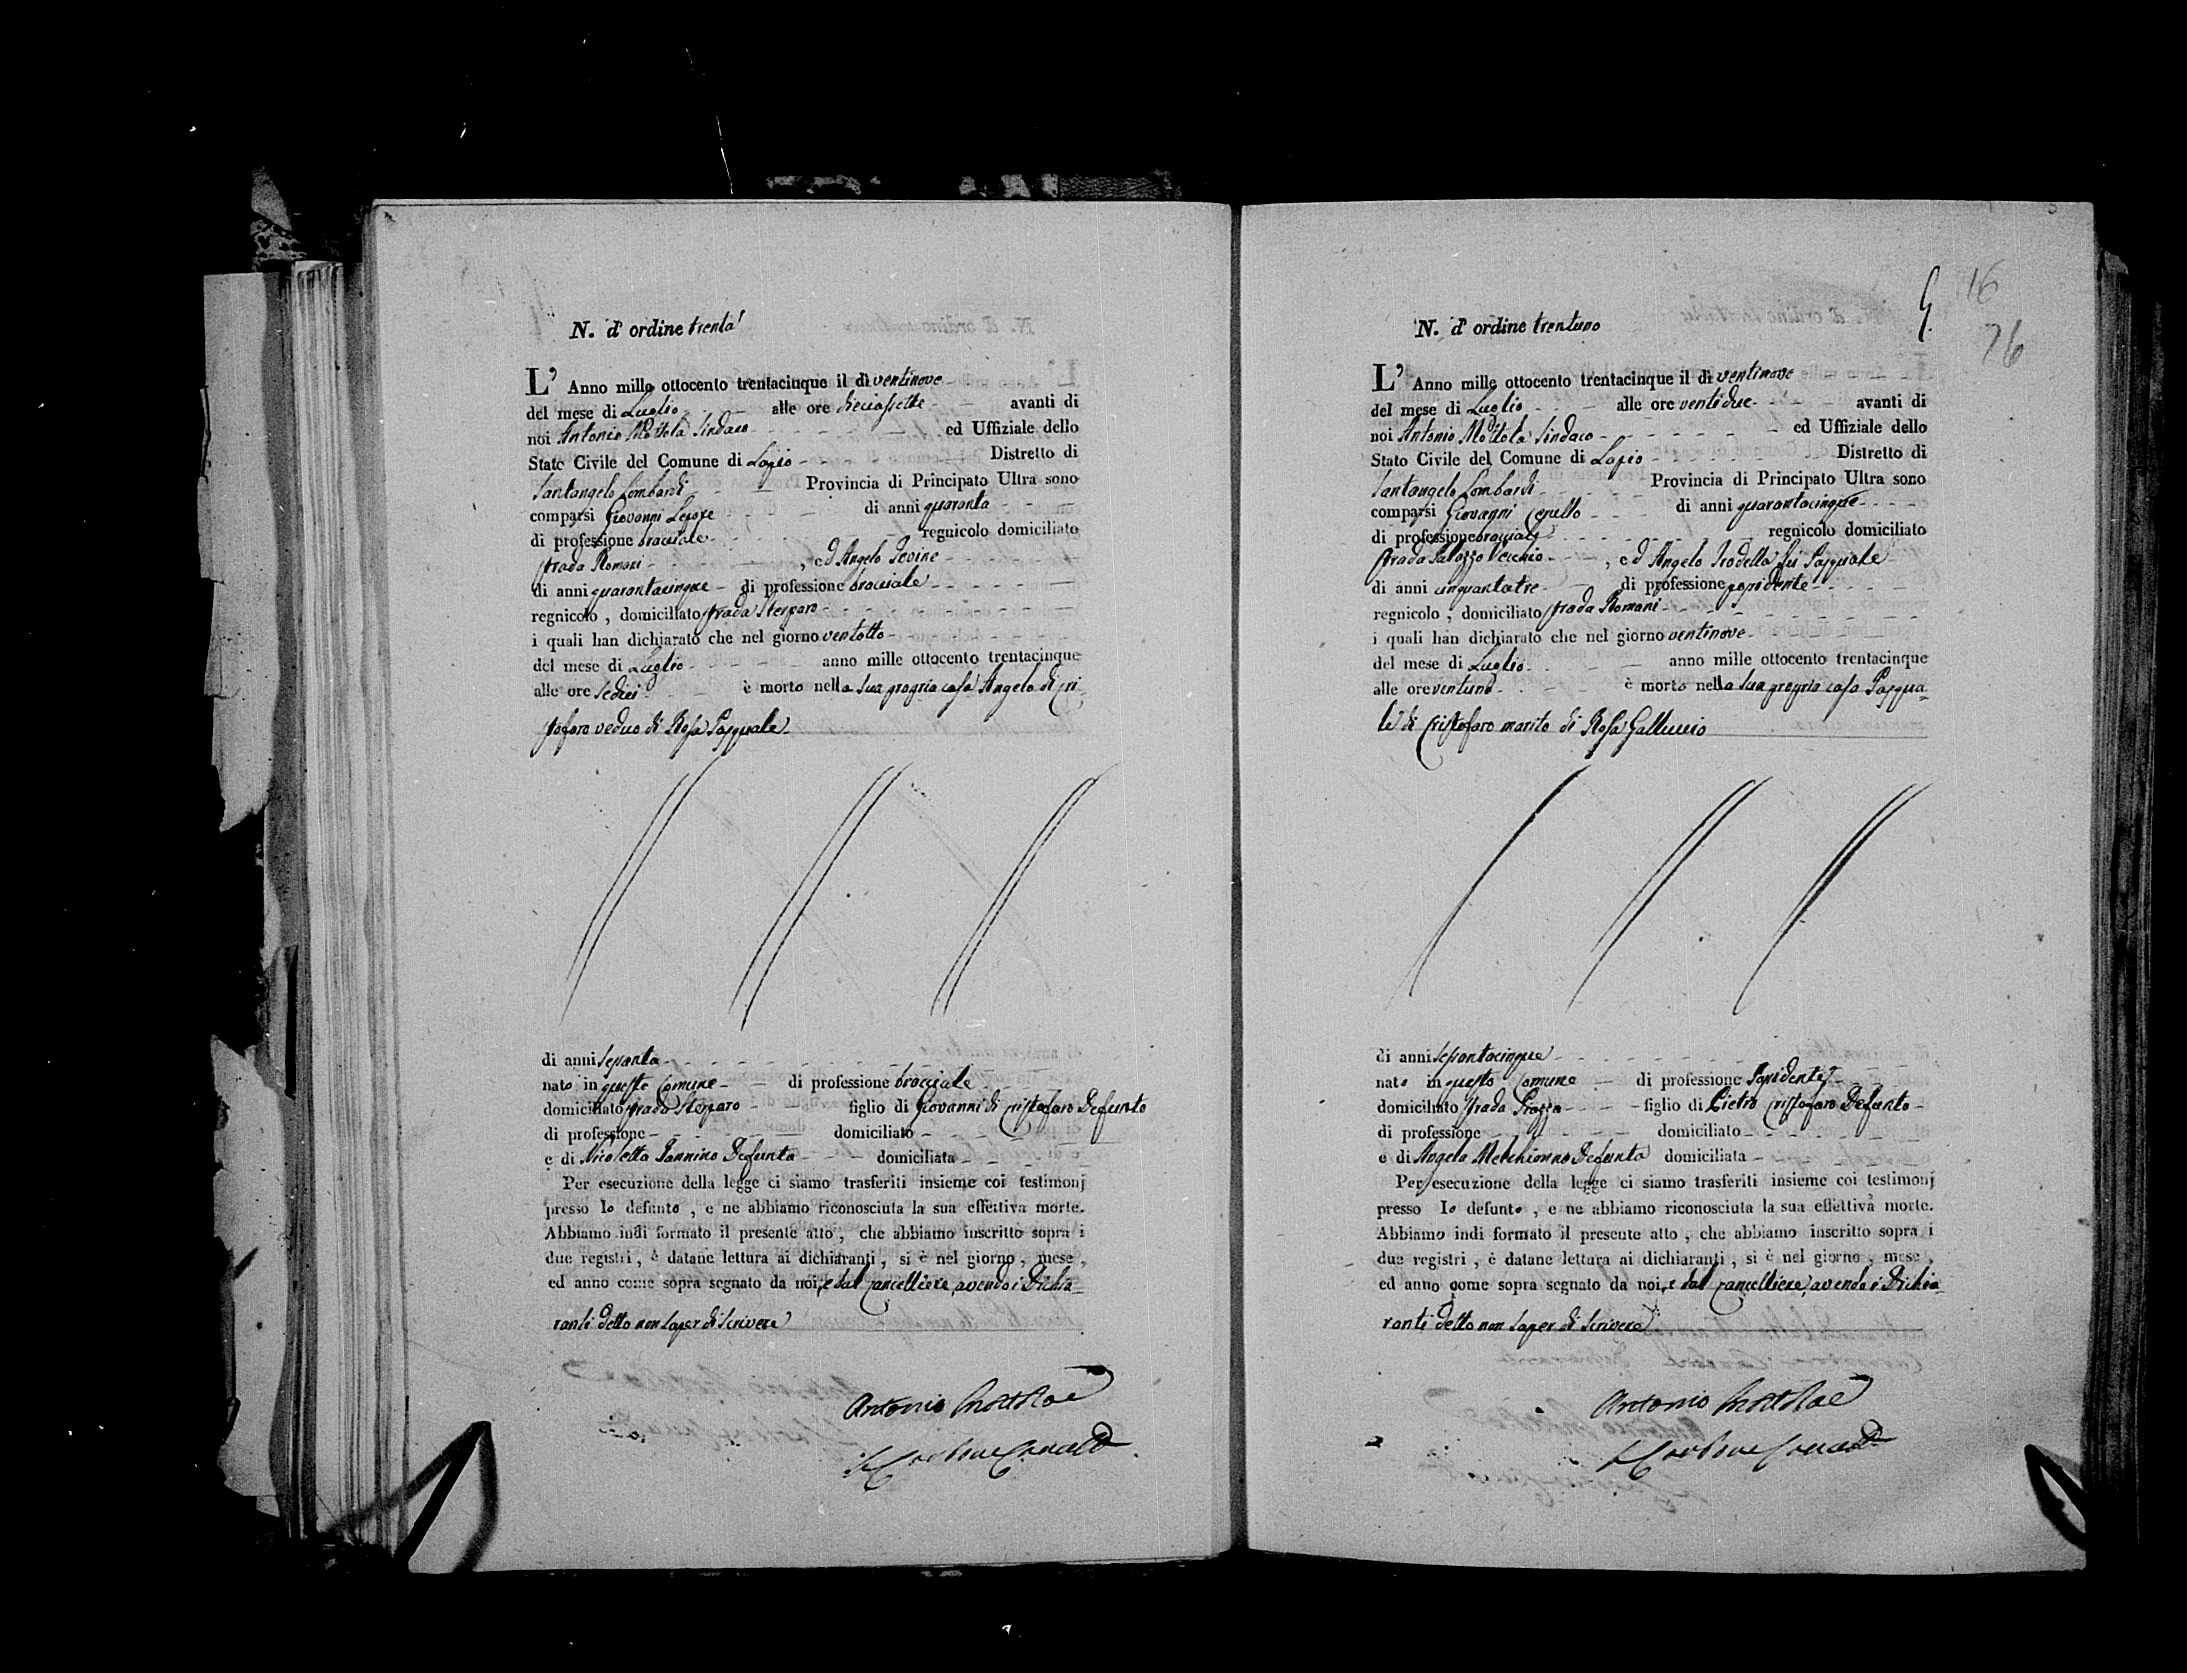 N. d' ordine trenta
L' Anno mille ottocento trentacinque il dì ventinove
del mese di Luglio alle ore diecissette avanti di
noi Antonio Mottola Sindaco ed Uffiziale dello
Stato Civile del Comune di Lapio Distretto di
Santangelo Lombardi Provincia di Principato Ultra sono
comparsi Giovanni Lepore di anni quaranta
di professione bracciale regnicolo domiciliato
strada Romani , ed Angelo Iovine
di anni quarantacinque di professione bracciale
regnicolo , domiciliato strada Sterparo
i quali han dichiarato che nel giorno ventotto
del mese di Luglio anno mille ottocento trentacinque
alle ore Sedici è morto nella sua propria casa Angelo di Cri-
stofaro veduo di Rosa Pasquale
di anni sessanta
nato in questo Comune di professione bracciale
domiciliato strada Sterparo figlio di Giovanni di Cristofaro Defunto
di professione domiciliato
e di Nicoletta Iannino Defunta domiciliata
Per esecuzione della legge ci siamo trasferiti insieme coi testimonj
presso lo defunto , e ne abbiamo riconosciuta la sua effettiva morte.
Abbiamo indi formato il presente atto , che abbiamo inscritto sopra i
due registri , è datane lettura ai dichiaranti , si è nel giorno , mese ,
ed anno come sopra segnato da noi, e dal Cancelliere, avendo i Dichia-
ranti detto non saper di scrivere
Antonio Mottola
N. d' ordine trentuno
16
76
L' Anno mille ottocento trentacinque il dì ventinove
del mese di Luglio alle ore ventidue avanti di
noi Antonio Mottola Sindaco ed Uffiziale dello
Stato Civile del Comune di Lapio Distretto di
Santangelo Lombardi Provincia di Principato Ultra sono
comparsi Giovanni Cepullo di anni quarantacinque
di professione bracciale regnicolo domiciliato
strada Palazzo Vecchio , ed Angelo Trodella fu Pasquale
di anni cinquantatre di professione possidente
regnicolo , domiciliato strada Romani
i quali han dichiarato che nel giorno ventinove
del mese di Luglio anno mille ottocento trentacinque
alle ore ventuno è morto nella sua propria casa Pasqua-
le di Cristofaro marito di Rosa Galluccio
di anni sessantacinque
nato in questo Comune di professione Possidente
domiciliato strada Piazza figlio di Pietro Cristofaro Defunto
di professione domiciliato
e di Angela Melchionno Defunta domiciliata
Per esecuzione della legge ci siamo trasferiti insieme coi testimonj
presso lo defunto , e ne abbiamo riconosciuta la sua effettiva morte.
Abbiamo indi formato il presente atto , che abbiamo inscritto sopra i
due registri , è datane lettura ai dichiaranti , si è nel giorno , mese ,
ed anno come sopra segnato da noi, e dal Cancelliere, avendo i Dichia-
ranti detto non saper di scrivere
Antonio Mottola